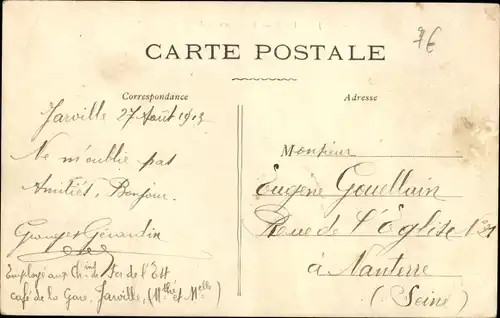 76
CARTE POSTALE
Correspondance
Adresse
Jarville 27 Août 1913
Ne m'oublie pas
Amitiés, Bonjour.
Georges Gérardin
Employé aux Ch.ins de Fer de l'Est
café de la Gare, Jarville, (M.the et M.elle)
Monsieur
Eugène Gouellain
Rue de l'Eglise N°
à Nanterre
(Seine)